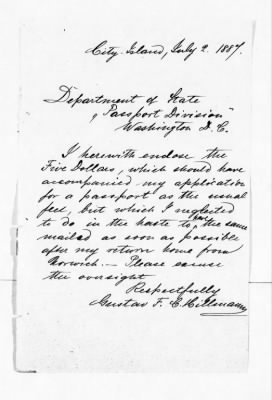 City Island, July 2. 1887.
Department of State
"Passport Division"
Washington D. C.
I herewith enclose the
Five Dollars, which should have
accompanied my application
for a passport as the usual
fee, but which I neglected
to do in the haste to, have the same
mailed as soon as possible
after my return home from
Norwich. — Please excuse
the oversight
Respectfully
Gustav F. C. Hillmann